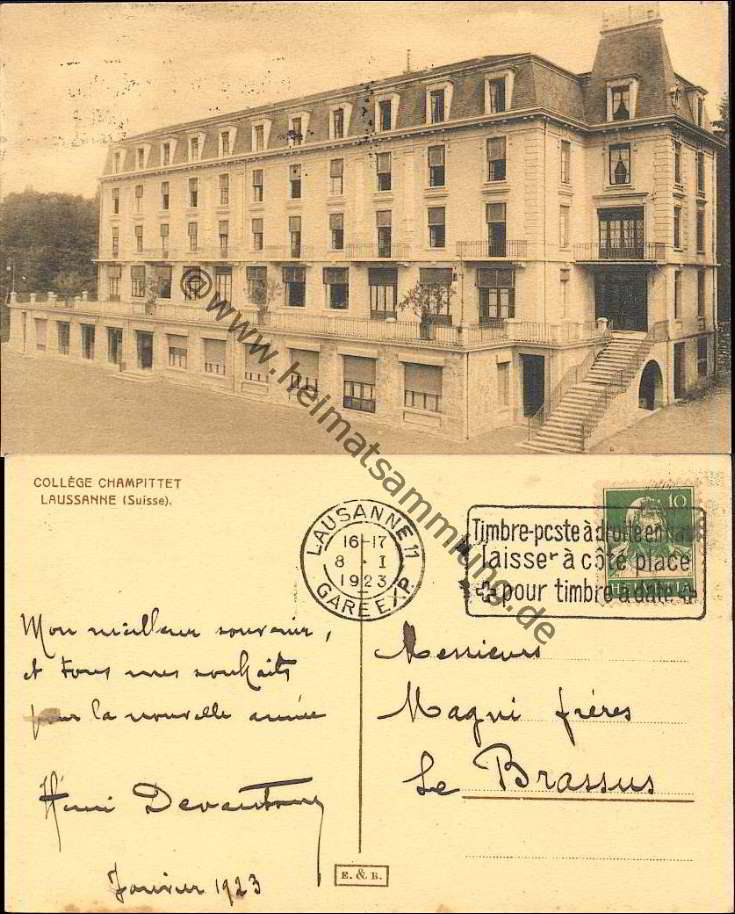 @www.heimatsammlung.de
COLLÈGE CHAMPITTET
LAUSSANNE (Suisse).
LAUSANNE 11
16-17
8 · I
1923
GARE EXP.
Timbre-poste à droite en haut
laisser à côté place
pour timbre à date
10
HELVETIA
Mon meilleur souvenir,
et tous mes souhaits
pour la nouvelle année
Henri
Janvier 1923
Messieurs
Magni frères
Le Brassus
E. & R.